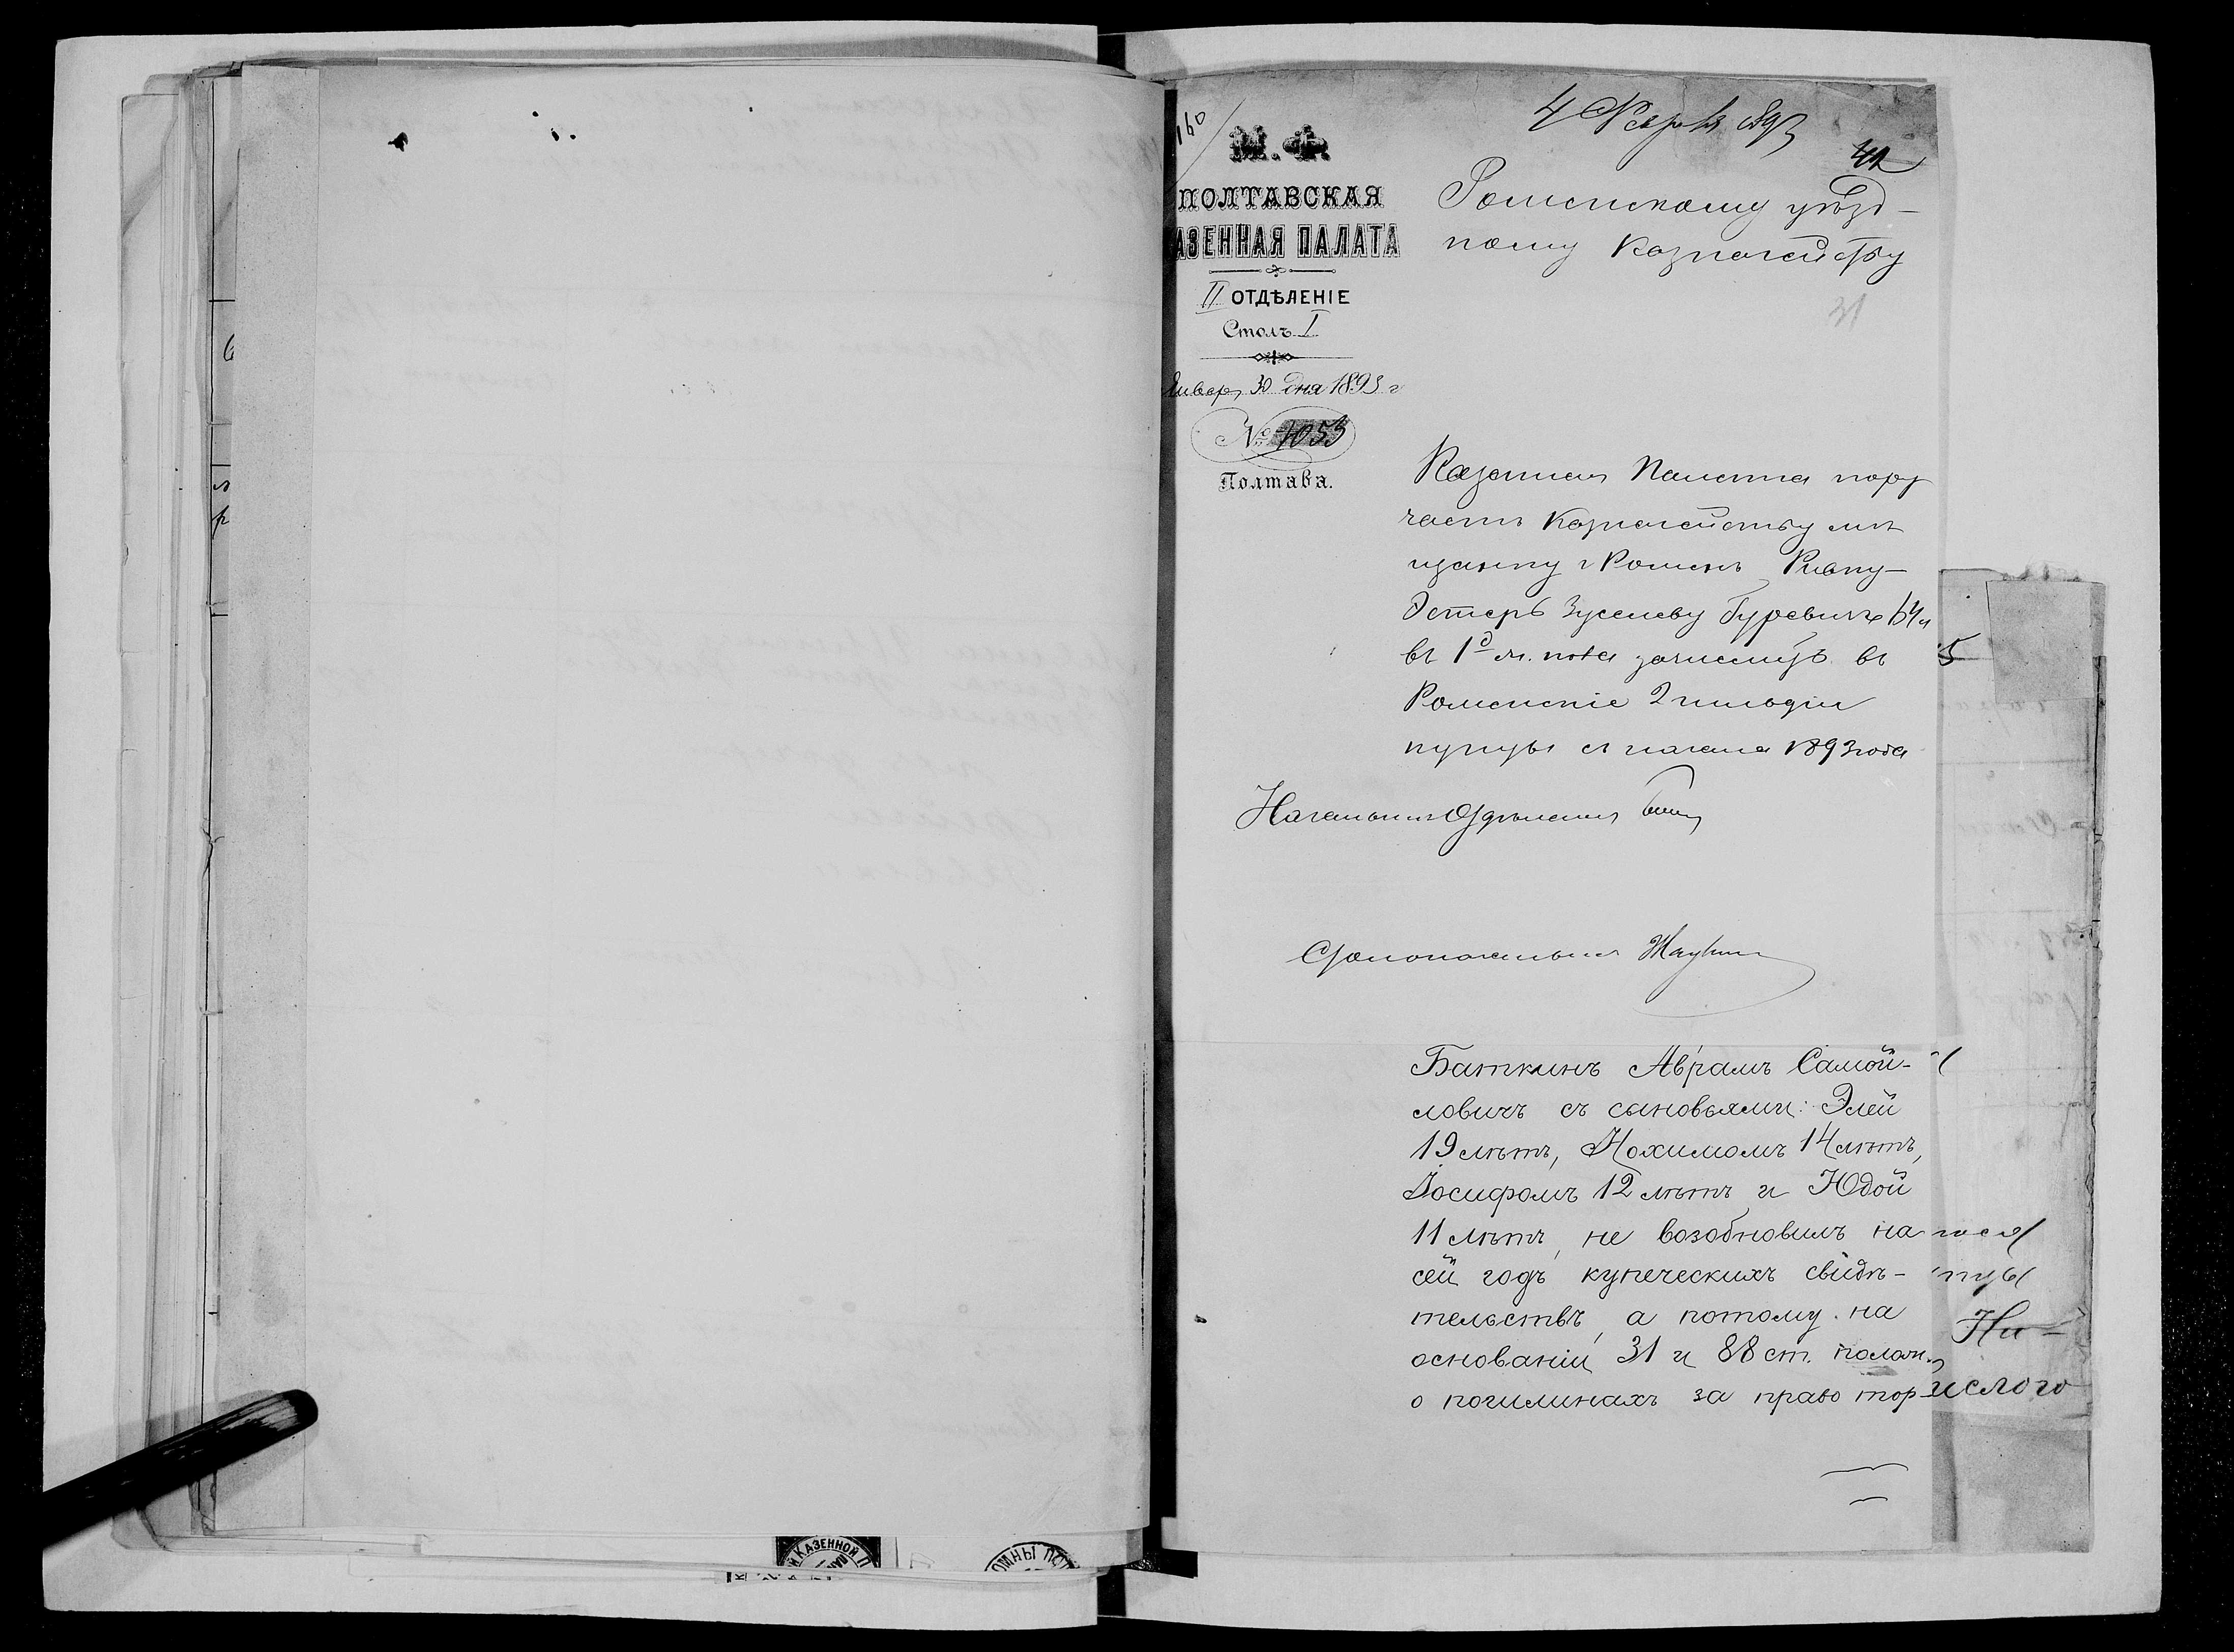 160
М. Ф.
ПОЛТАВСКАЯ
АЗЕННАЯ ПАЛАТА
II ОТДѢЛЕНІЕ
Столъ I
Января 30 дня 1893 г
№ 1053
Полтава.
4 Февр 1893
42
Роменскому уѣзд-
ному Казначейству
31
Казенная Палата пору
чаетъ Казначейству мѣ
щанку г Роменъ Ривку-
Эстеръ Зуселеву Гуревичъ 64 л
въ 1й м. года зачислить въ
Роменскіе 2 гильдіи
купцы съ начала 1893 года
Начальникъ Отдѣленія
Столоначальникъ
Баткинъ Аврамъ Самой-
ловичъ съ сыновьями: Элей
19 лѣтъ, Нохимомъ 14 лѣтъ,
Іосифомъ 12 лѣтъ и Юдой
11 лѣтъ, не возобновилъ на
сей годъ купеческихъ свидѣ-
тельствъ, а потому на
основаніи 31 и 88 ст. полож.
о пошлинахъ за право тор-
5
ислого
КАЗЕННОЙ П